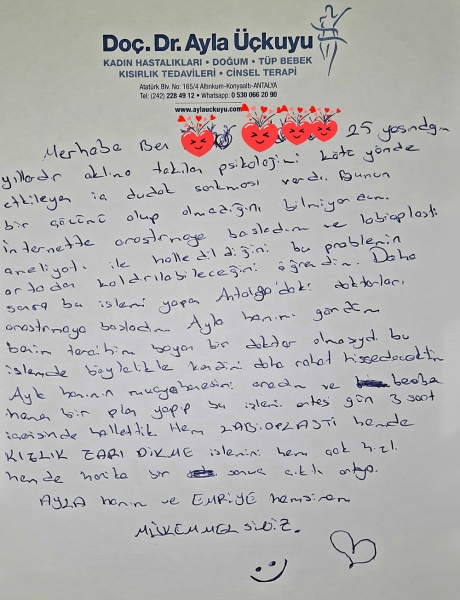 Doç. Dr. Ayla Üçkuyu
KADIN HASTALIKLARI • DOĞUM • TÜP BEBEK
KISIRLIK TEDAVİLERİ • CİNSEL TERAPİ
Atatürk Blv. No: 165/4 Altınkum-Konyaaltı-ANTALYA
Tel: (242) 228 49 12 • Whatsapp: 0 530 066 20 90
www.aylauckuyu.com
Merhaba Ben 25 yaşındayım
yıllardır aklıma takılan psikolojimi kötü yönde
etkileyen iç dudak sarkması vardı. Bunun
bir çözümü olup olmadığını bilmiyordum.
İnternette araştırmaya başladım ve labioplasti
ameliyatı ile halledildiğini bu problemin
ortadan kaldırılabileceğini öğrendim. Daha
sonra bu işlemi yapan Antalya'daki doktorları
araştırmaya başladım Ayla hanımı gördüm
benim tercihim bayan bir doktor olmasıydı bu
işlemde böylelikle kendimi daha rahat hissedecektim
Ayla hanımın muayehanesini aradım ve beraber
hemen bir plan yapıp bu işlemi ertesi gün 3 saat
içerisinde hallettik Hem LABİOPLASTİ hemde
KIZLIK ZARI DİKME işlemini hem çok hızlı
hemde harika bir sonuç çıktı ortaya.
AYLA hanım ve EMRİYE hemşirem
MÜKEMMELSİNİZ.